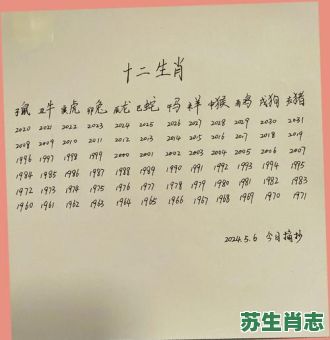 十二生肖
子鼠 丑牛 寅虎 卯兔 辰龙 巳蛇 午马 未羊 申猴 酉鸡 戌狗 亥猪
2020 2021 2022 2023 2024 2025 2026 2027 2028 2029 2030 2031
2008 2009 2010 2011 2012 2013 2014 2015 2016 2017 2018 2019
1996 1997 1998 1999 2000 2001 2002 2003 2004 2005 2006 2007
1984 1985 1986 1987 1988 1989 1990 1991 1992 1993 1994 1995
1972 1973 1974 1975 1976 1977 1978 1979 1980 1981 1982 1983
1960 1961 1962 1963 1964 1965 1966 1967 1968 1969 1970 1971
2024.5.6 今日摘抄
苏生肖志